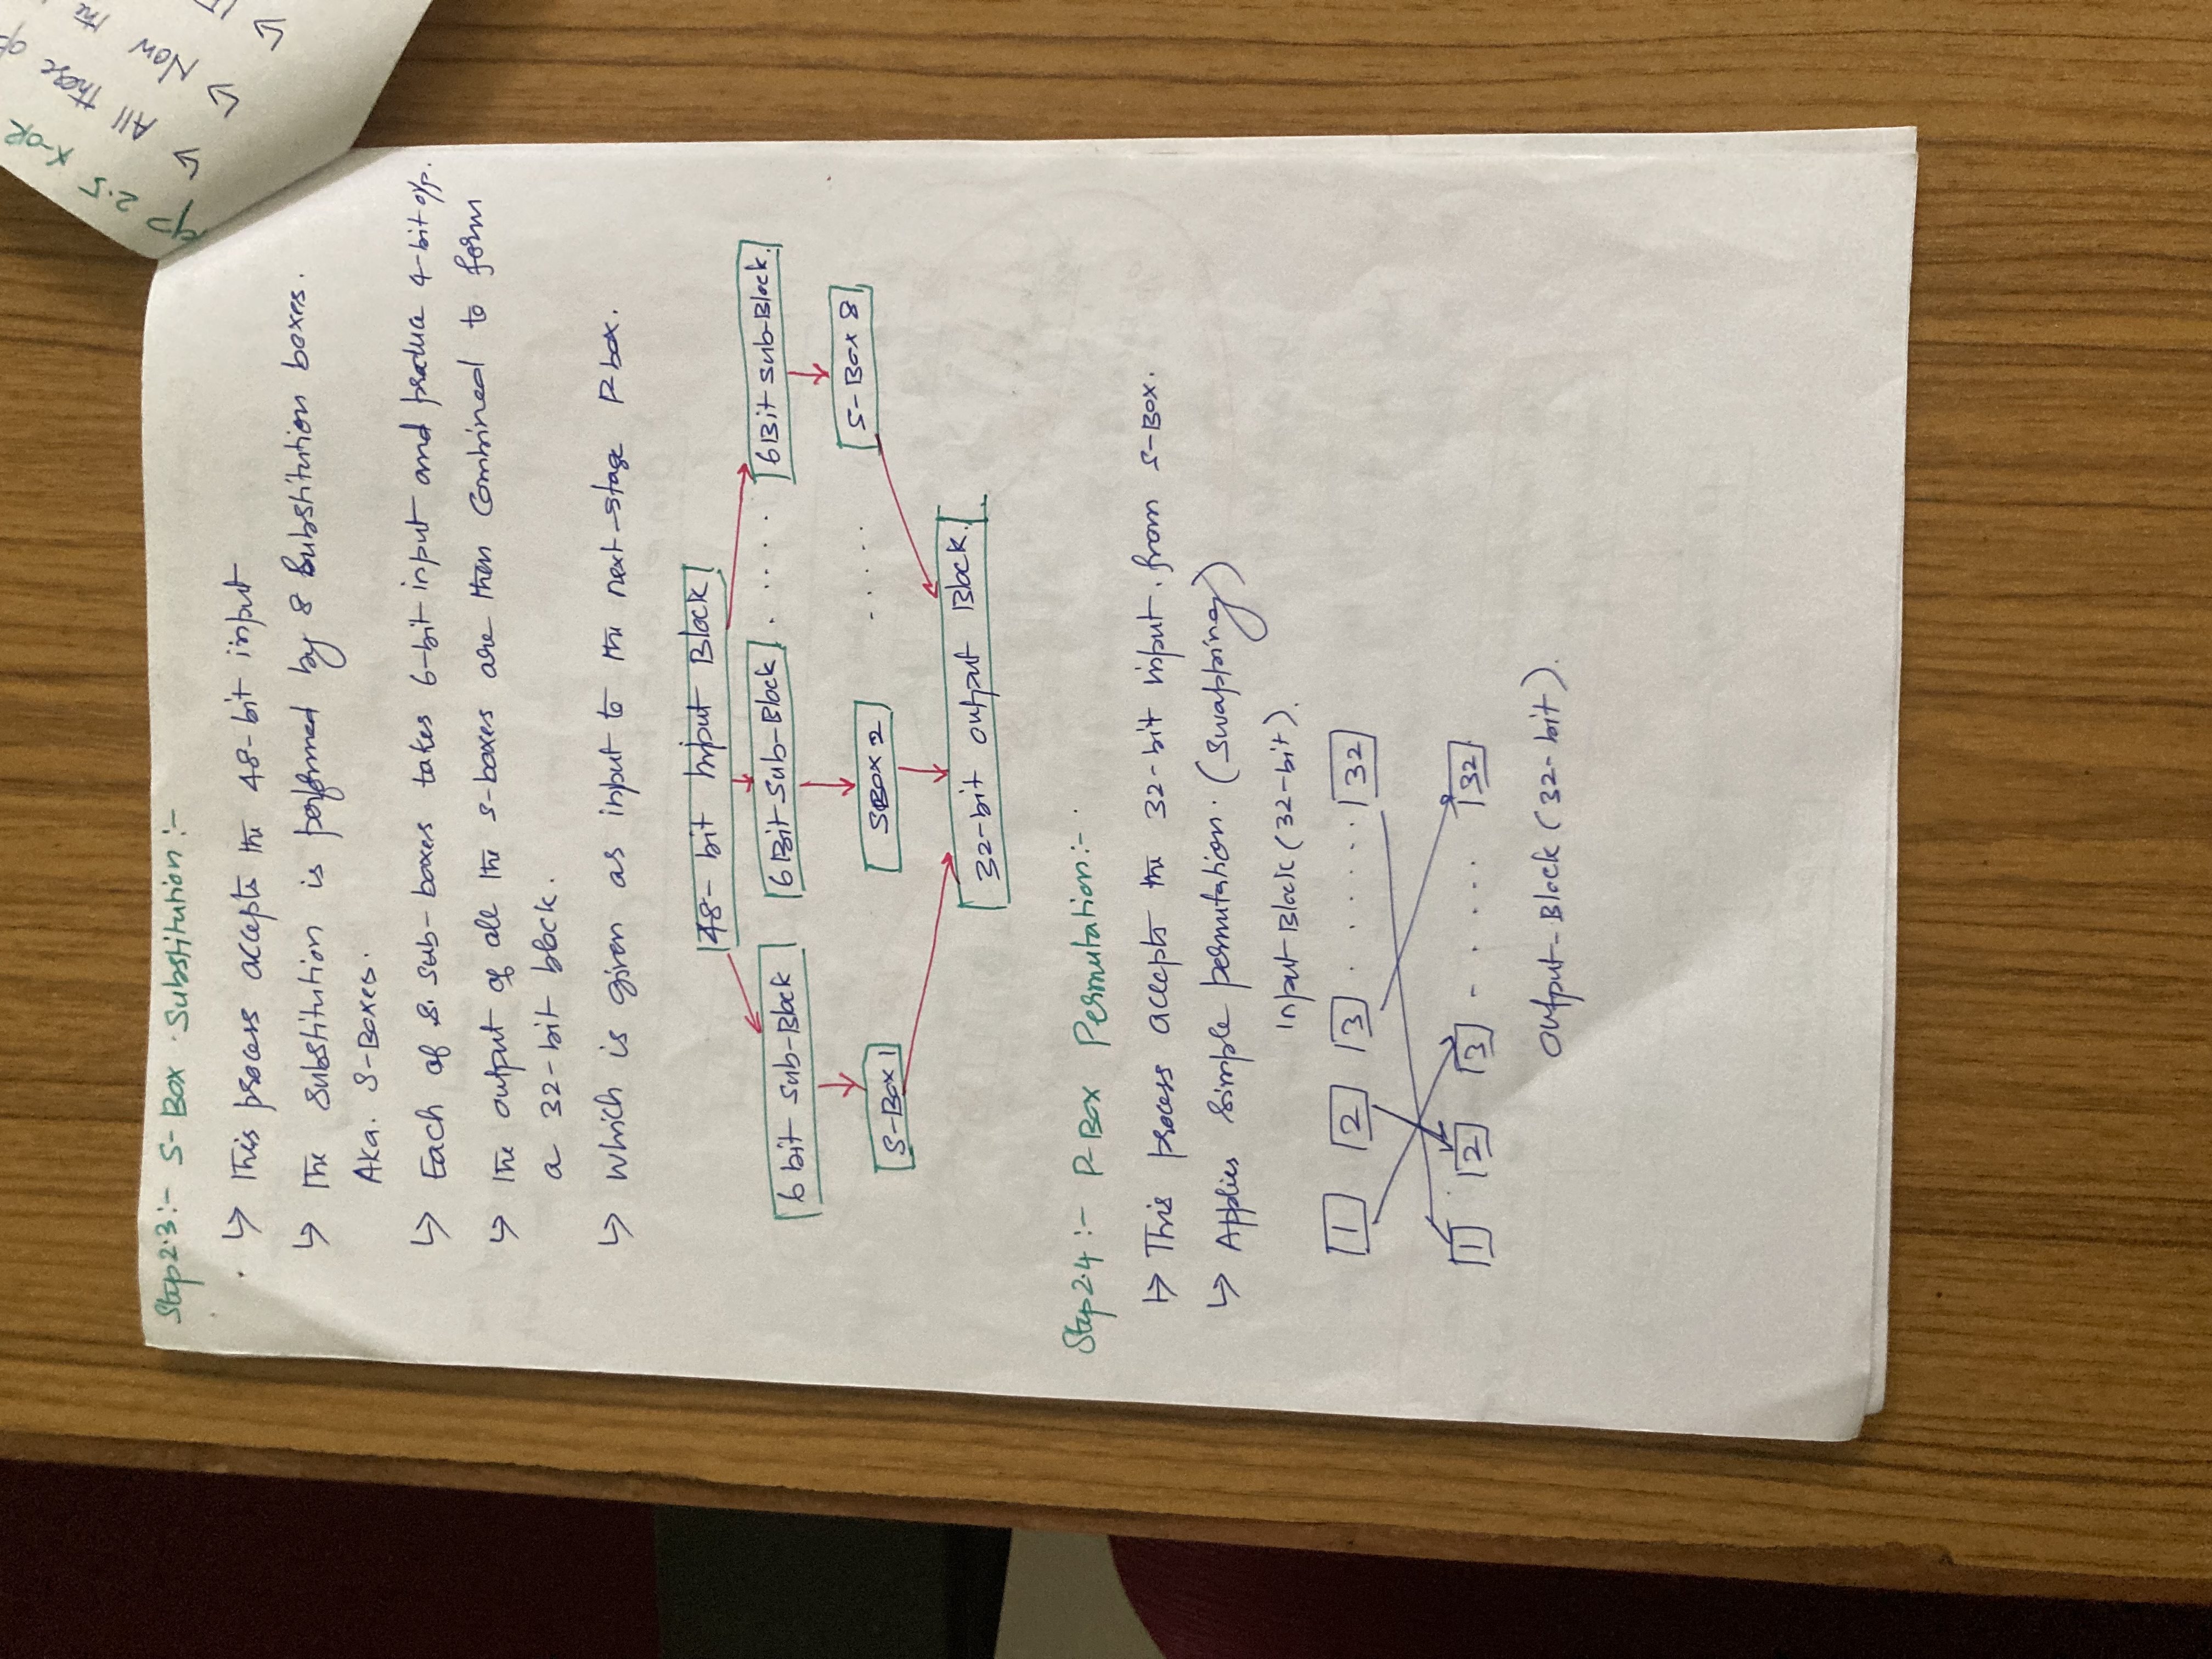 Step 2.3:- S-Box Substitution:-
↳ This process accepts the 48-bit input
↳ The Substitution is performed by 8 Substitution boxes.
Aka. S-Boxes.
↳ Each of 8. Sub-boxes takes 6-bit input and produce 4-bit o/p.
↳ The output of all the S-boxes are then Combined to form
a 32-bit block.
↳ Which is given as input to the next-stage P-box.
48-bit Input Block
6 bit Sub-Block 6 Bit Sub-Block . . . . . 6 Bit Sub-Block.
S-Box 1 SBOX 2 . . . . . S-Box 8
32-bit output Block.
Step 2.4:- P-Box Permutation:-
↳ This process accepts the 32-bit input. from S-Box.
↳ Applies Simple permutation. (Swapping)
Input Block (32-bit).
1 2 3 . . . . . . 32
1 2 3 - . . . . . 32
Output-Block (32-bit).
2.5 X-OR
↳ All these
↳ Now the
↳